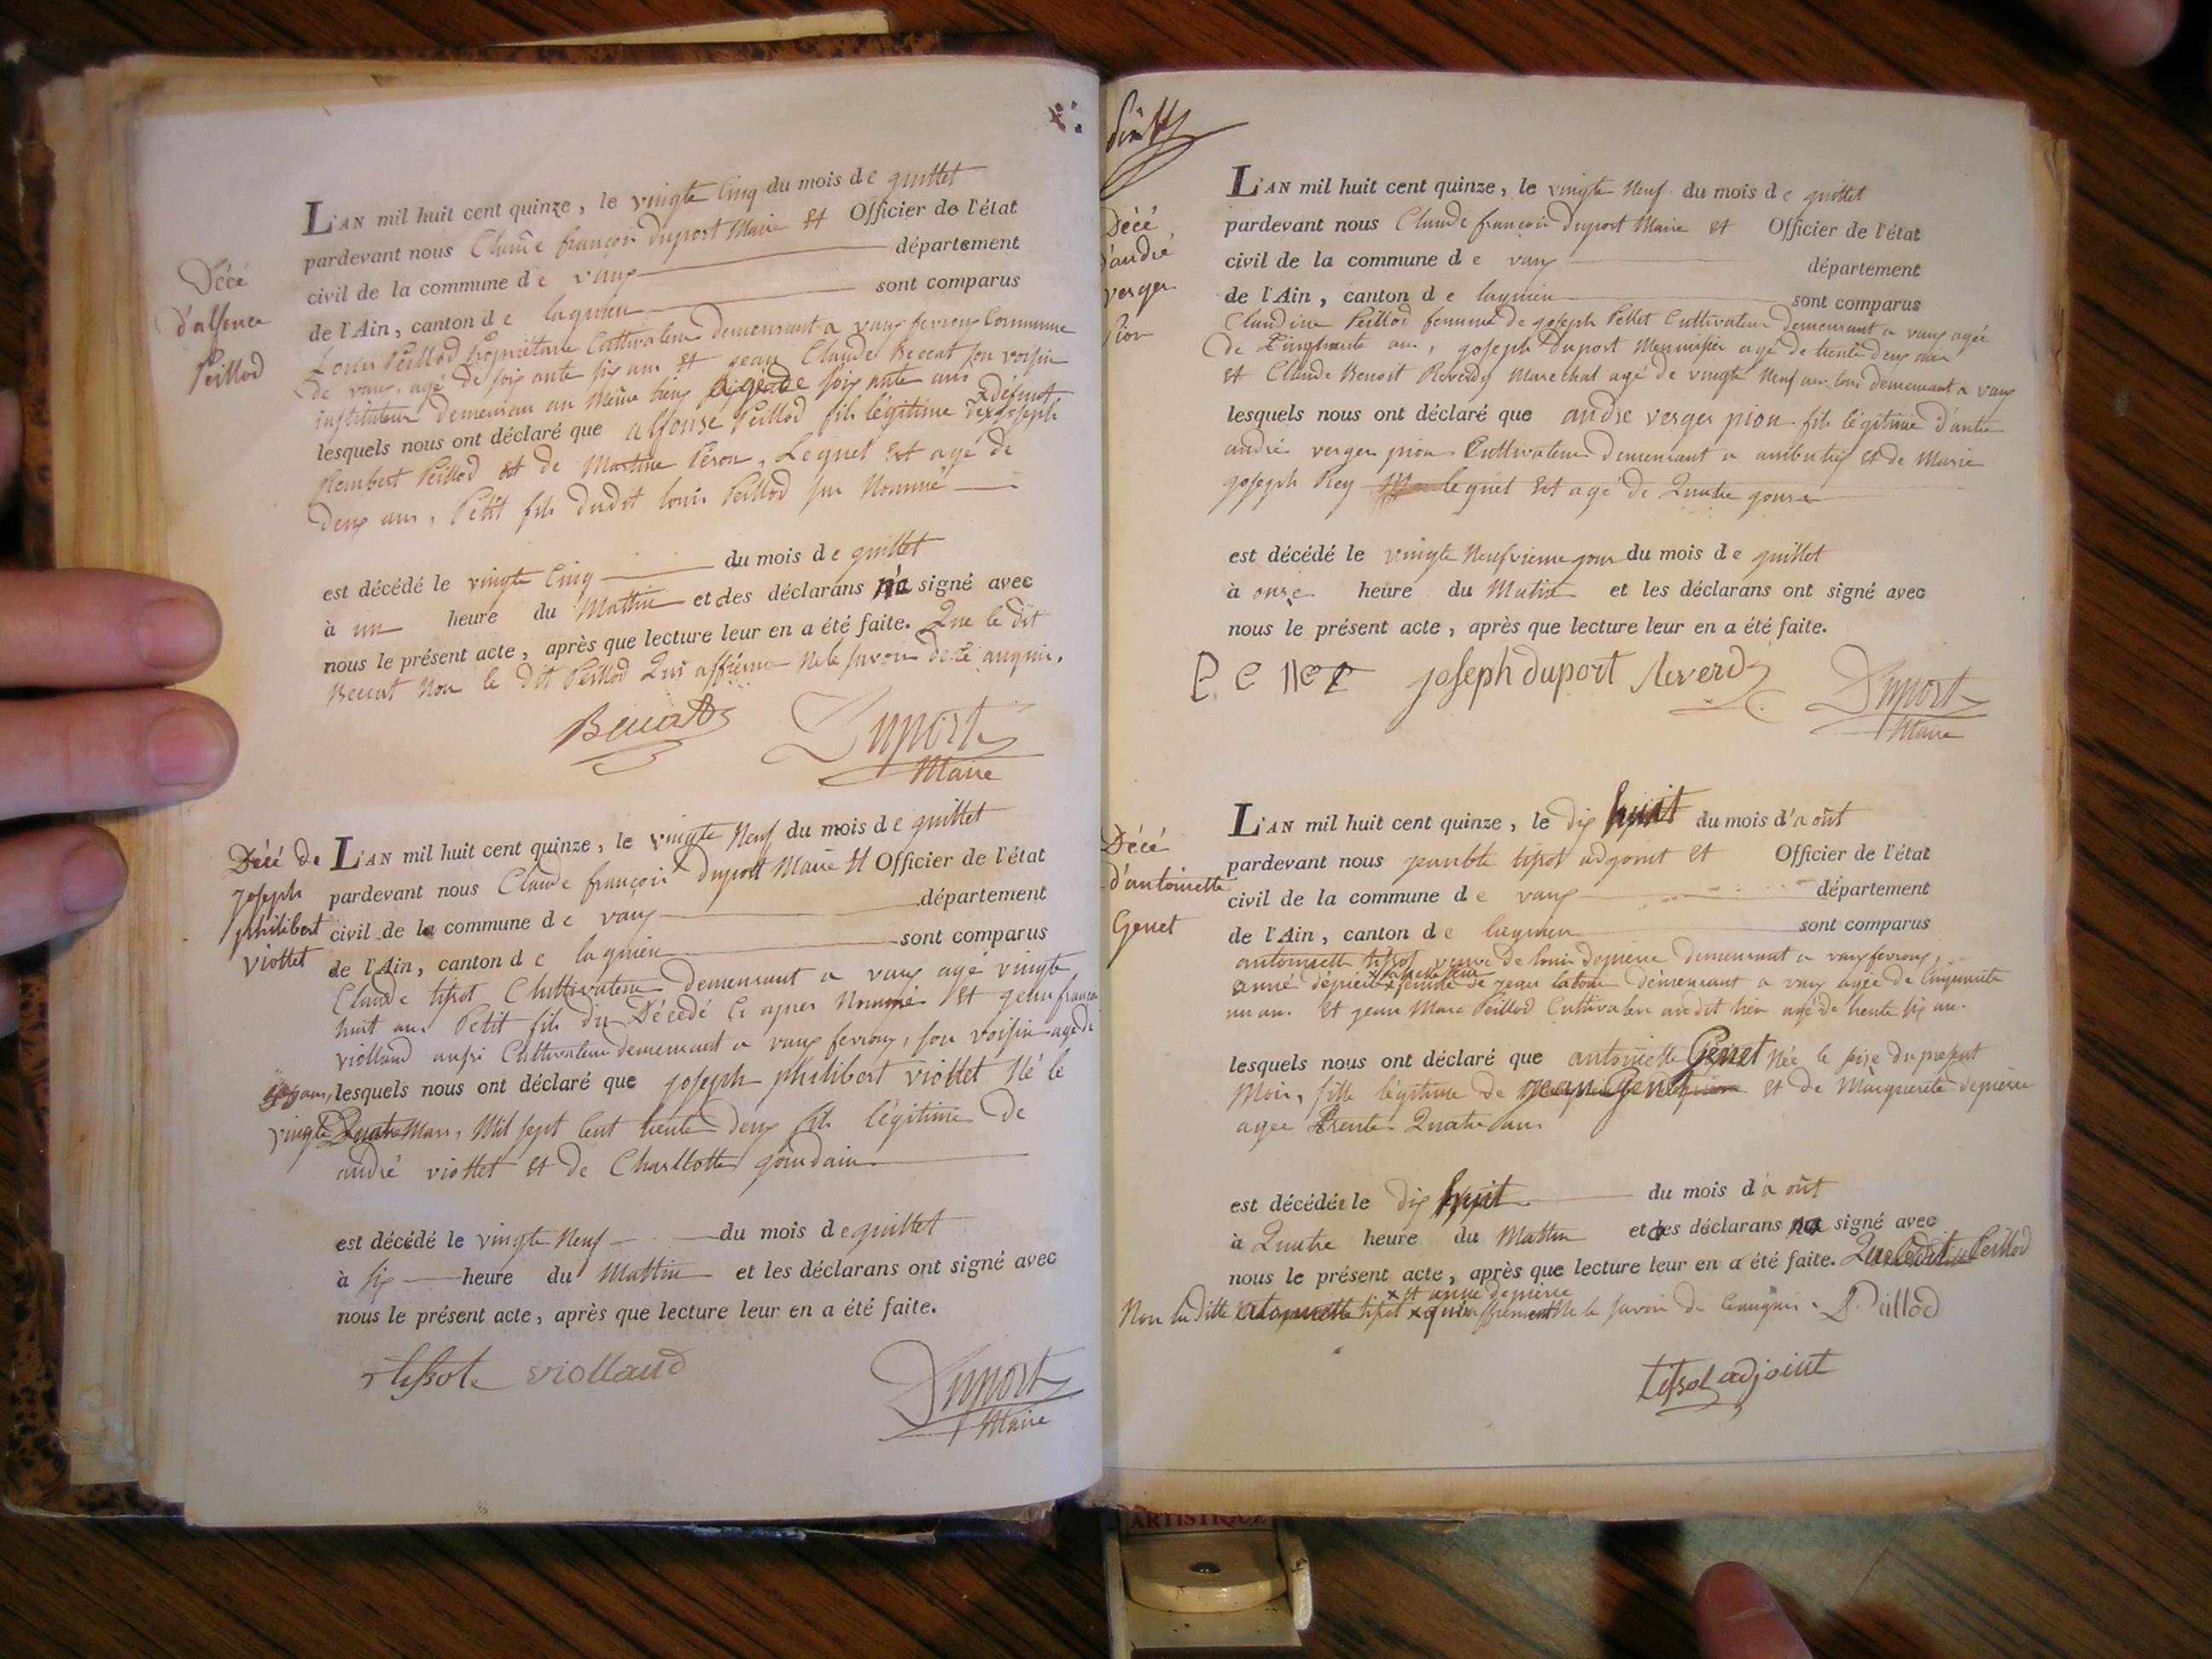 Décé
d'alfonse
Peillod
L'AN mil huit cent quinze, le vingte Cinq du mois de guillet
pardevant nous Claude françois duport Maire et Officier de l'état
civil de la commune de vaux département
de l'Ain, canton de lagnieu sont comparus
Louis Peillod propriétaire Cultivateur demeurant a vaux fevroux Commune
de vaux, agé de soixante six ans et jean Claude Beccat son voisin
instituteur demeuran au même lieu agé de soixante ans
lesquels nous ont déclaré que alfonse Peillod fils légitime de x joseph x défunt
Rembert Peillod et de Martine Péron, Lequel est agé de
deux ans, Petit fils dudit louis Peillod sus Nommé
est décédé le vingte Cinq du mois de guillet
à un heure du Mattin et des déclarans n'a signé avec
nous le présent acte, après que lecture leur en a été faite. Que le dit
Beccat Non le dit Peillod Qui affirme Ne le savoir de ce anquis.
Beccat
Duport
Maire
Décé de
joseph
philibert
viottet
L'AN mil huit cent quinze, le vingte Neuf du mois de guillet
pardevant nous Claude françois duport Maire et Officier de l'état
civil de la commune de vaux département
de l'Ain, canton de lagnieu sont comparus
Claude tissot Cultivateur demeurant a vaux agé vingte
huit ans Petit fils du Décédé Ci apres Nommé et jean françois
viollaud aussi Cultivateur demeurant a vaux fevroux, son voisin agé de
ans, lesquels nous ont déclaré que joseph philibert viottet Né le
vingte Quatre Mars, Mil sept Cent trente deux fils légitime de
andré viottet et de Charllotte gourdain
est décédé le vingte Neuf du mois de guillet
à six heure du Mattin et les déclarans ont signé avec
nous le présent acte, après que lecture leur en a été faite.
tissot viollaud
Duport
Maire
Décé
d'andré
verger
Pion
L'AN mil huit cent quinze, le vingte Neuf du mois de guillet
pardevant nous Claude françois duport Maire et Officier de l'état
civil de la commune de vaux département
de l'Ain, canton de lagnieu sont comparus
Claudine Peillod femme de joseph Pellet Cultivateur demeurant a vaux agée
de Cinquante ans, joseph duport Menuisier agé de trente deux ans
et Claude Benoit Reverdy Marechal agé de vingte Neuf ans tous demeurant a vaux
lesquels nous ont déclaré que andré verger pion fils légitime d'autre
andré verger pion Cultivateur demeurant a ambutrix et de Marie
joseph Rey lequel est agé de Quatre jours
est décédé le vingte Neufvieme jour du mois de guillet
à onze heure du Matin et les déclarans ont signé avec
nous le présent acte, après que lecture leur en a été faite.
Pellet joseph duport Reverdy
Duport
Maire
Décé
d'antoinette
Genet
L'AN mil huit cent quinze, le dix huit du mois d'août
pardevant nous jeanbte tissot adjoint et Officier de l'état
civil de la commune de vaux département
de l'Ain, canton de lagnieu sont comparus
antoinette tissot veuve de louis depierre demeurant a vaux fevroux,
anné depierre x femme de jean demeurant a vaux agée de Cinquante
un an. Et jean Marc Peillod Cultivateur audit lieu agé de trente six ans.
lesquels nous ont déclaré que antoinette Genet Née le seize du present
Mois, fille légitime de jean Genet et de Marguerite depierre
agee trente Quatre ans
est décédée le dix huit du mois d'août
à Quatre heure du Mattin et des déclarans na signé avec
nous le présent acte, après que lecture leur en a été faite. Que ledit Peillod
x et anne depierre
Non la ditte antoinette tissot x qui affirment Ne le savoir de ceanquis. Peillod
tissot adjoint
ARTISTIQUE